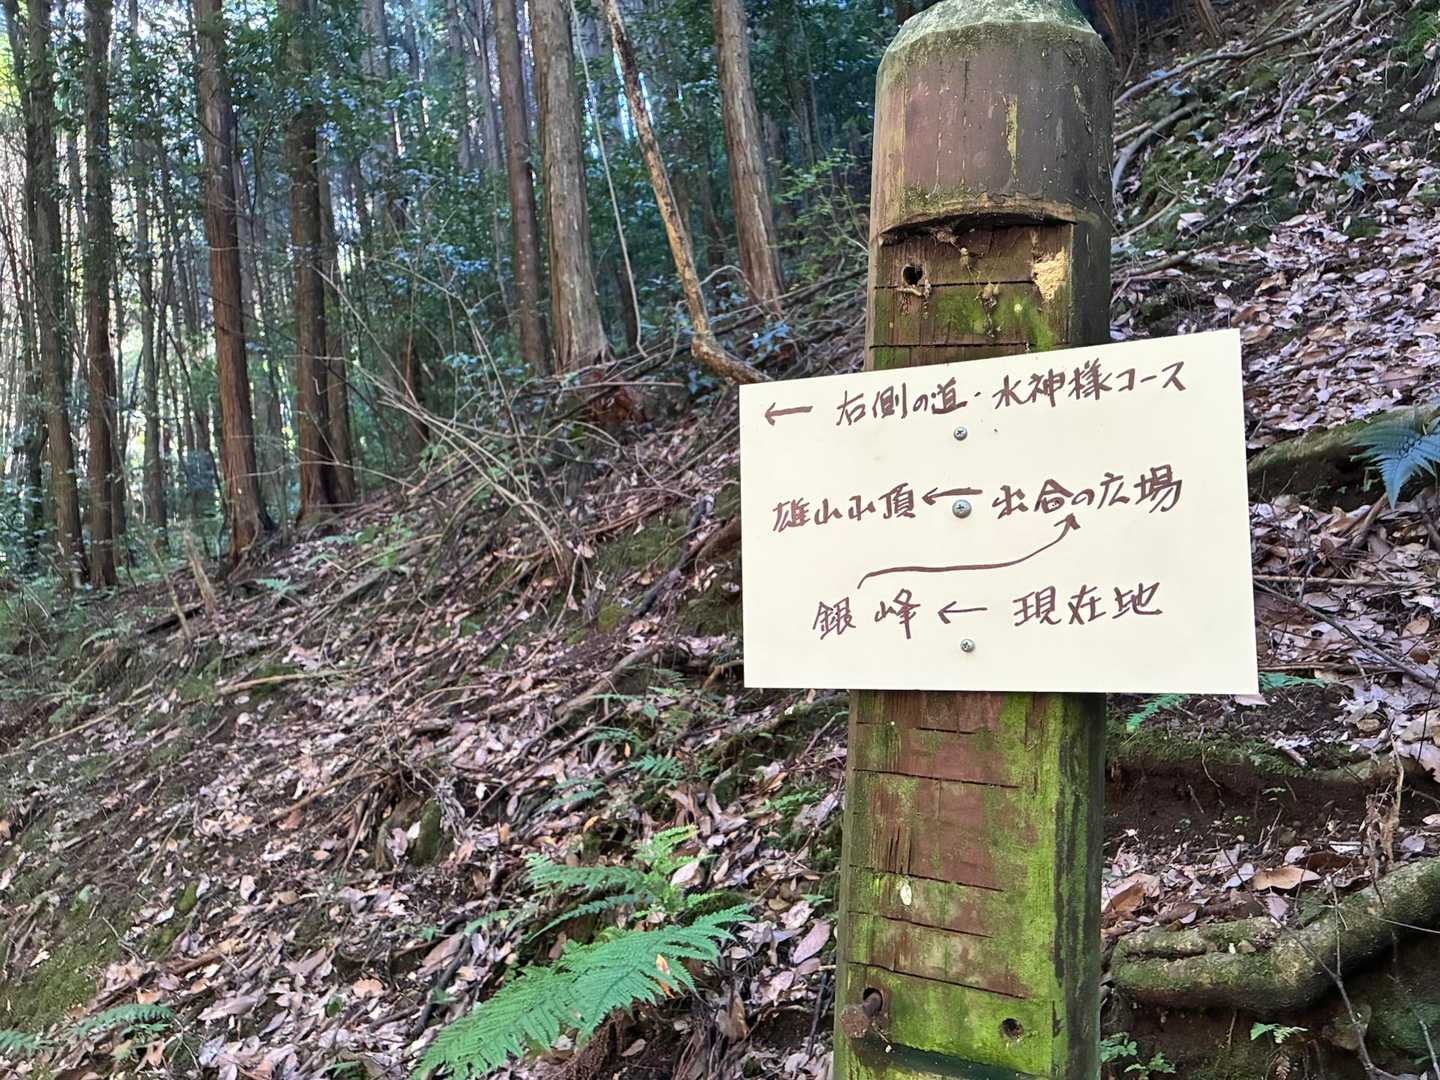 ← 右側の道・水神様コース
雄山山頂 ← 出合の広場
銀峰 ← 現在地